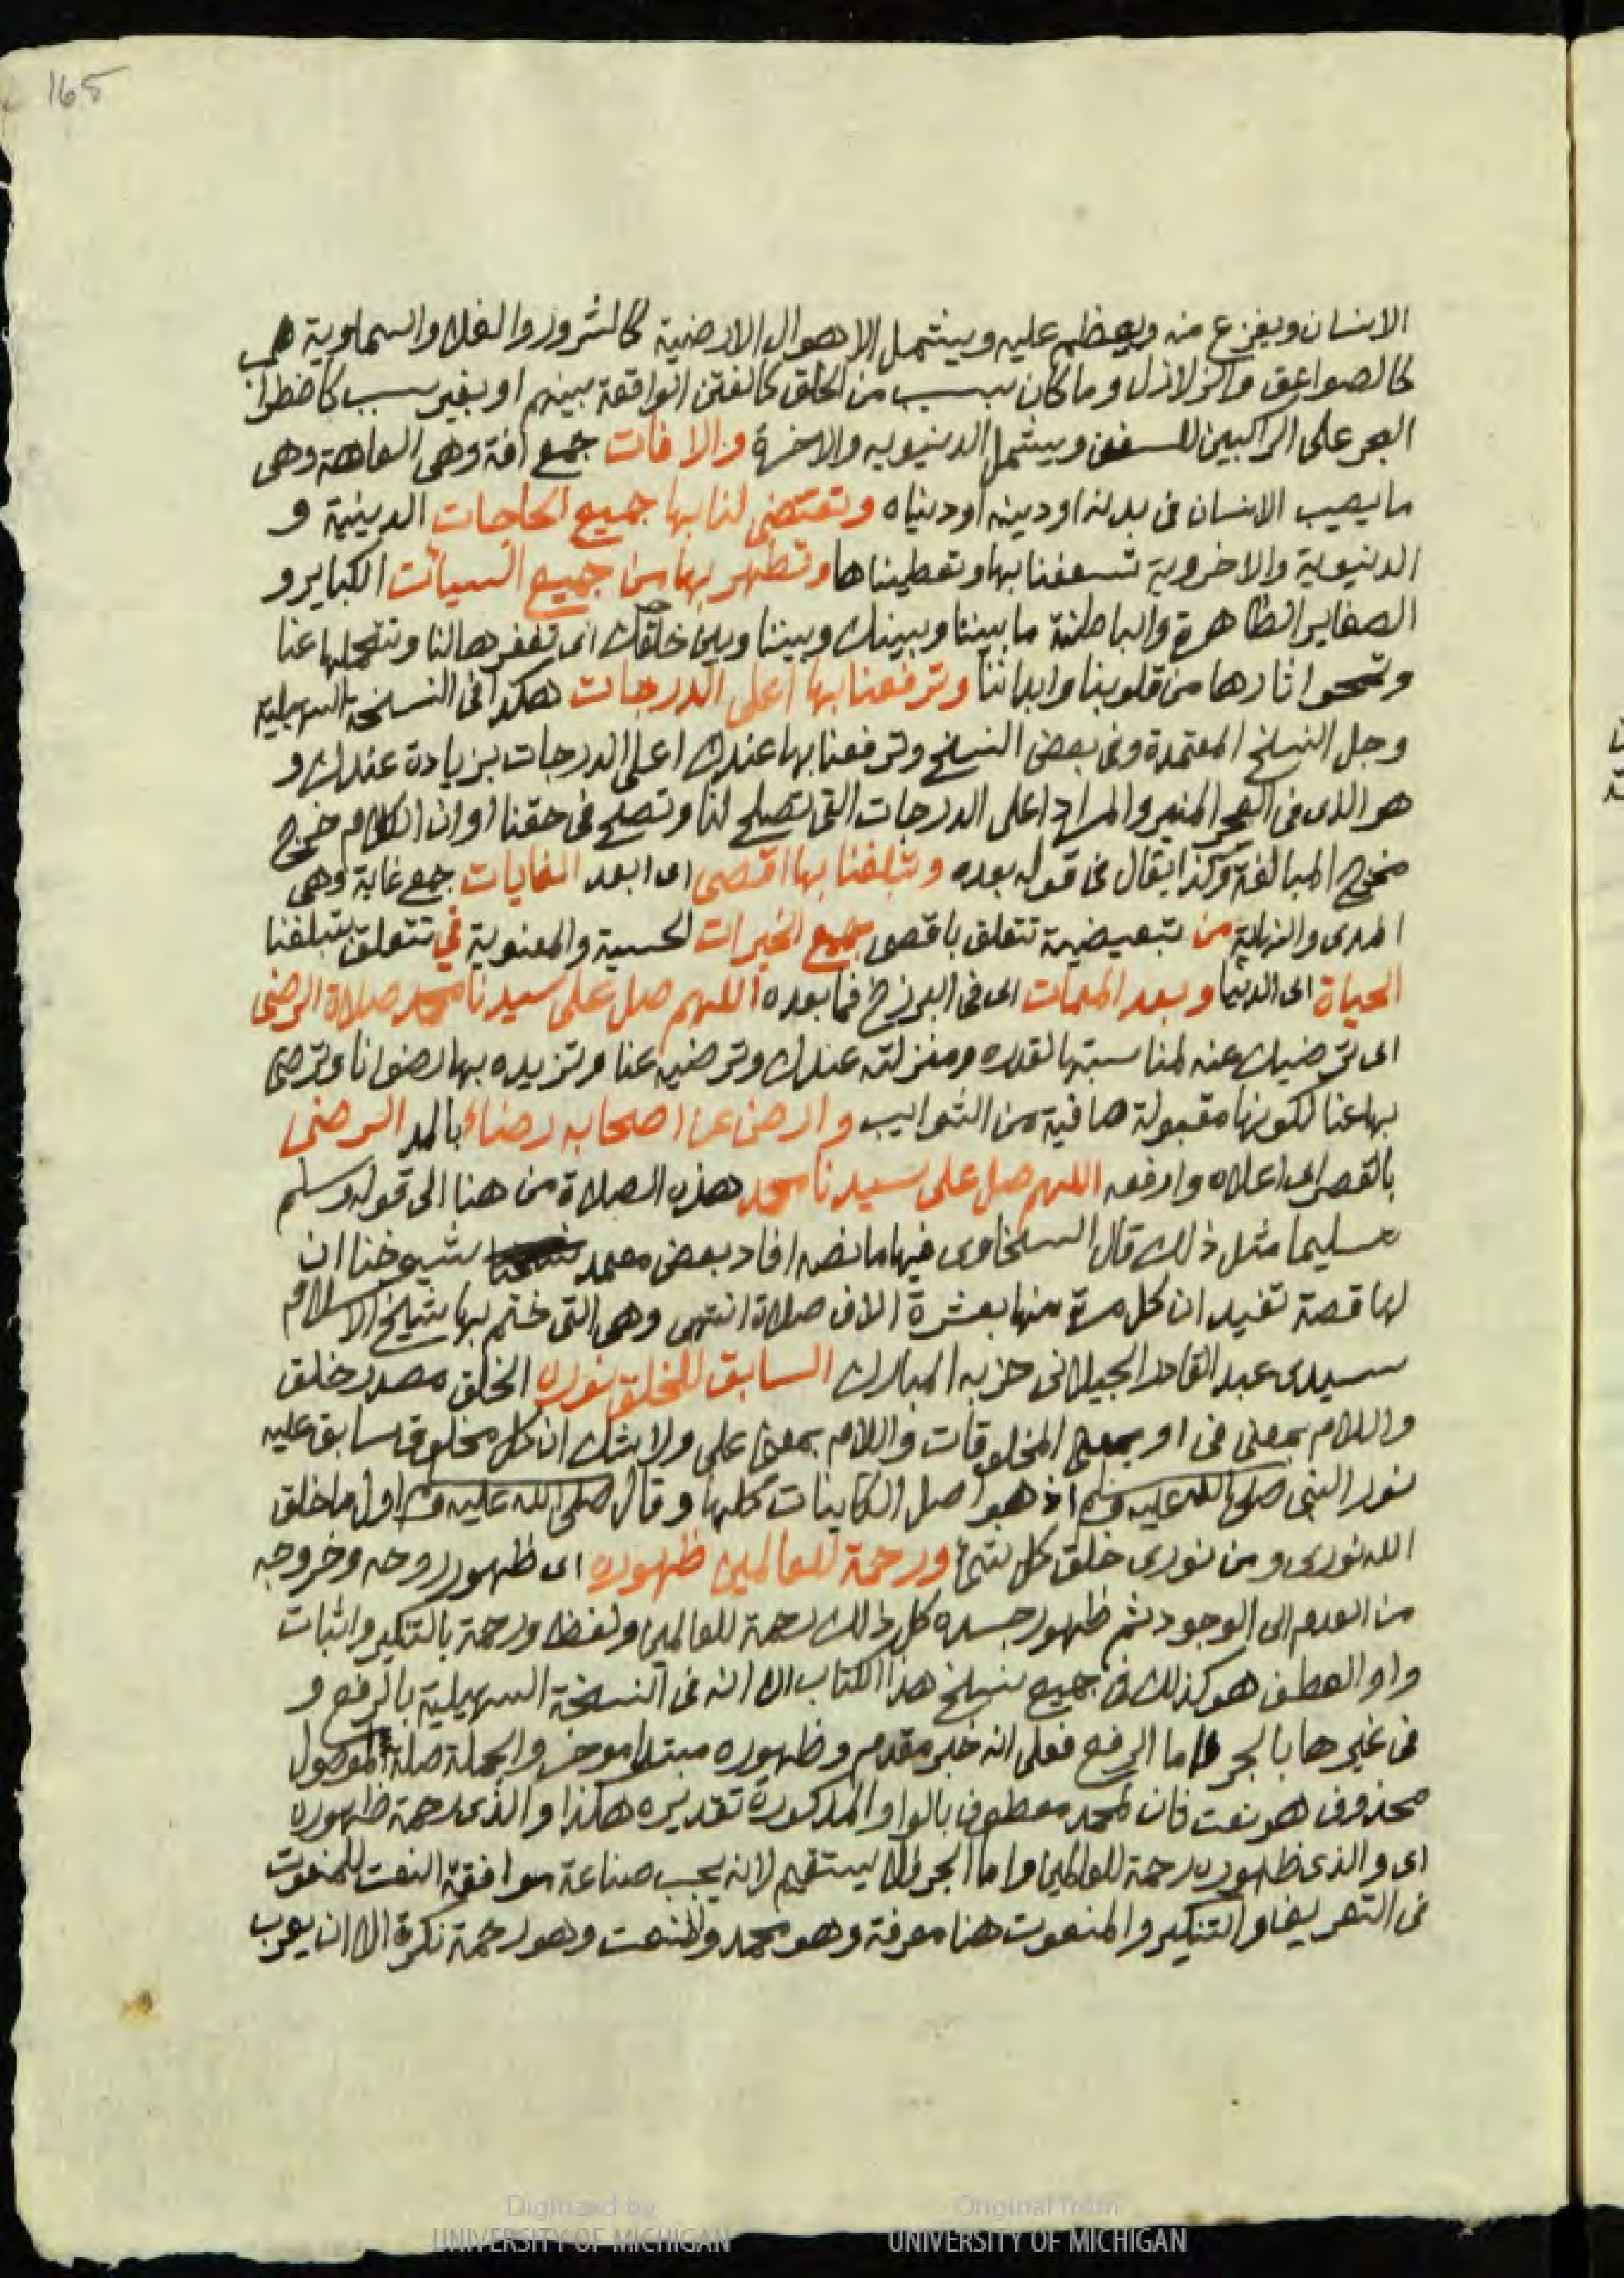 165
الانسان ويفزع منه ويعظم عليه ويشمل الاهوال الارضية كالشرور والغلا والسماوية
كالصواعق والزلازل وما كان بسبب من الخلق كالفتن الواقعة بينهم او بغير سبب كاضطراب
البحر على الراكبين للسفن ويشمل الدنيويه والاخرة والافات جمع افة وهي العاهة وهي
ما يصيب الانسان في بدنه او دينه او دنياه وتقتضي لنا بها جميع الحاجات الدينية و
الدنيوية والاخروية تسعفنا بها وتعطيناها وتطهر بها من جميع السيات الكباير و
الصغاير الظاهرة والباطنة ما بيننا وبينك وبيننا وبين خلقك اى تغفرها لنا وتتحملها عنا
وتمحوا اثارها من قلوبنا وابداننا وترفعنا بها اعلى الدرجات هكذا في النسخة السهيلية
وجل النسخ المعتمدة وفى بعض النسخ وترفعنا بها عندك اعلى الدرجات بزيادة عندك و
هو الذى في الفجر المنير والمراد اعلى الدرجات التى تصلح لنا وتصلح فى حقنا او ان الكلام خرج
مخرج المبالغة وكذا يقال فى قوله بعده وتبلغنا بها اقصى اى ابعد الغايات جمع غاية وهى
المدى والنهاية من تبعيضية تتعلق باقصى جميع الخيرات الحسية والمعنوية في تتعلق بتبلغنا
الحياة اى الدنيا وبعد الممات اى فى البرزخ فما بعده اللهم صل على سيدنا محمد صلاة الرضى
اى ترضيك عنه لمناسبتها لقدره ومنزلته عندك وترضيه عنا وتزيده بها رضوانا وترضى
بها عنا لكونها مقبولة صافية من الشوايب وارض عن اصحابه رضاء بالمد الرضى
بالقصر اى اعلاه وارفعه اللهم صل على سيدنا محمد هذه الصلاة من هنا الى قوله وسلم
تسليما مثل ذلك قال السخاوى فيها ما نصه افاد بعض معتمد شيوخنا ان
لها قصة تفيد ان كل مرة منها بعشرة الاف صلاة انتهى وهى التى ختم بها شيخ الاسلام
سيدى عبد القادر الجيلانى حزبه المبارك السابق للخلق نوره الخلق مصدر خلق
واللام بمعنى فى او بمعنى المخلوقات واللام بمعنى على ولا شك ان كل مخلوق سابق عليه
نور النبى صلى الله عليه وسلم اذ هو اصل الكاينات كلها وقال صلى الله عليه وسلم اول ما خلق
الله نورى ومن نورى خلق كل شئ ورحمة للعالمين ظهوره اى ظهور روحه وخروجه
من العدم الى الوجود ثم ظهور جسده كل ذلك رحمة للعالمين ولفظ ورحمة بالتنكير واثبات
واو العطف هو كذلك فى جميع نسخ هذا الكتاب الا انه فى النسخة السهيلية بالرفع و
فى غيرها بالجر اما الرفع فعلى انه خبر مقدم وظهوره مبتدا موخر والجملة صلة الموصول
محذوف هو نعت ثان لمحمد معطوف بالواو المذكورة تقديره هكذا والذى رحمة ظهوره
اى والذى ظهوره رحمة للعالمين واما الجر فلا يستقيم لانه يجب صناعة موافقة النعت للمنعوت
فى التعريف والتنكير والمنعوت هنا معرفة وهو محمد والنعت وهو رحمة نكرة الا ان يعرب
Digitized by
UNIVERSITY OF MICHIGAN
Original from
UNIVERSITY OF MICHIGAN